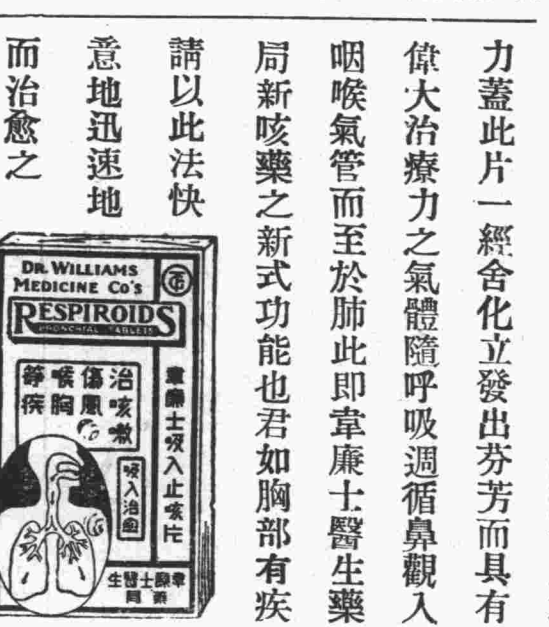 力蓋此片一經舍化立發出芬芳而具有
偉大治療力之氣體隨呼吸週循鼻觀入
咽喉氣管而至於肺此即韋廉士醫生藥
局新咳藥之新式功能也君如胸部有疾
請以此法快
意地迅速地
而治愈之
DR. WILLIAMS
MEDICINE CO'S
RESPIROIDS
BRONCHIAL TABLETS
韋廉士吸入止咳片
治咳嗽
傷風
喉胸
等疾
吸入治愈
韋廉士醫生
藥局